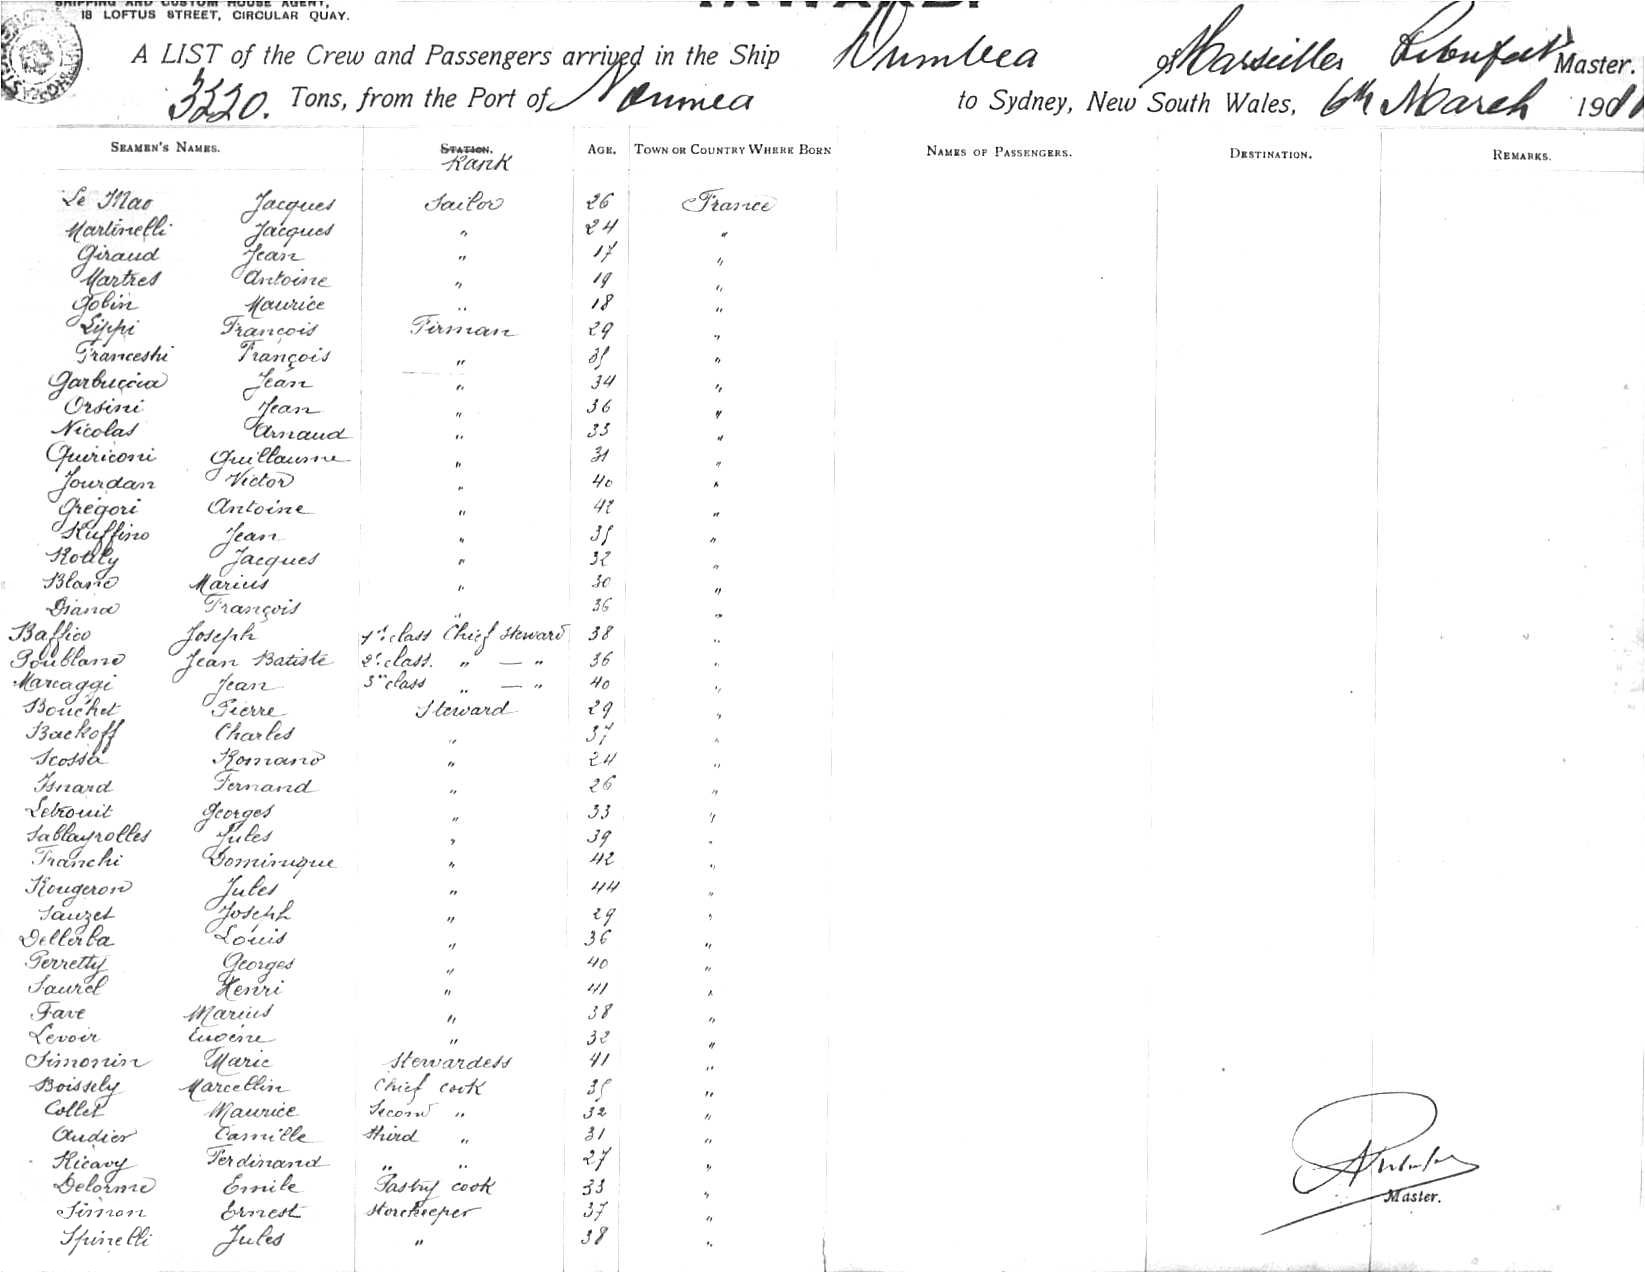 SHIPPING AND CUSTOM HOUSE AGENT,
18 LOFTUS STREET, CIRCULAR QUAY.
INWARD.
A LIST of the Crew and Passengers arrived in the Ship Dumbea of Marseilles Master.
3220. Tons, from the Port of Noumea to Sydney, New South Wales, 6th March 19
SEAMEN'S NAMES. STATION. Rank AGE. TOWN OR COUNTRY WHERE BORN NAMES OF PASSENGERS. DESTINATION. REMARKS.
Le Mao Jacques Sailor 26 France
Martinelli Jacques " 24 "
Giraud Jean " 17 "
Martres Antoine " 19 "
Gobin Maurice " 18 "
Lippi François Firman 29 "
Franceshi François " 35 "
Garbuccia Jean " 34 "
Orsini Jean " 36 "
Nicolas Arnaud " 33 "
Quiriconi Guillaume " 31 "
Jourdan Victor " 40 "
Grégori Antoine " 42 "
Ruffino Jean " 35 "
Rotily Jacques " 32 "
Blanc Marius " 30 "
Diana François " 36 "
Baffico Joseph 1st class Chief Steward 38 "
Poublanc Jean Batiste 2d class. " — " 36 "
Marcaggi Jean 3rd class " — " 40 "
Bouchet Pierre Steward 29 "
Backoff Charles " 37 "
Scossa Romano " 24 "
Isnard Fernand " 26 "
Letrouit Georges " 33 "
Sablayrolles Jules " 39 "
Franchi Dominique " 42 "
Rougeron Jules " 44 "
Sauzet Joseph " 29 "
Dellerba Louis " 36 "
Perretty Georges " 40 "
Saurel Henri " 41 "
Fave Marius " 38 "
Levoir Eugène " 32 "
Simonin Marie Stewardess 41 "
Boissely Marcellin Chief cook 35 "
Collet Maurice Second " 32 "
Audier Camille third " 31 "
Ricavy Ferdinand " " 27 "
Delorme Emile Pastry cook 33 "
Simon Ernest Storekeeper 37 "
Spinelli Jules " 38 "
Master.